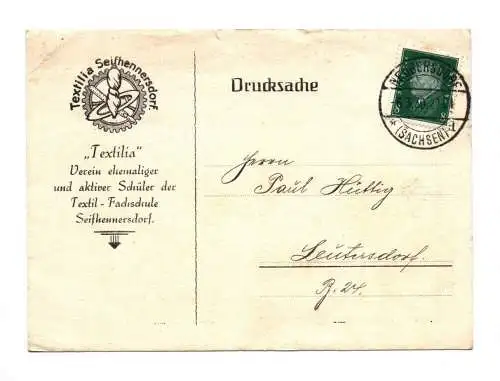 Textilia Seifhennersdorf.
„Textilia”
Verein ehemaliger
und aktiver Schüler der
Textil - Fachschule
Seifhennersdorf.
Drucksache
(SACHSEN)
Herrn
Paul Hüttig
Leutersdorf.
B. 24.